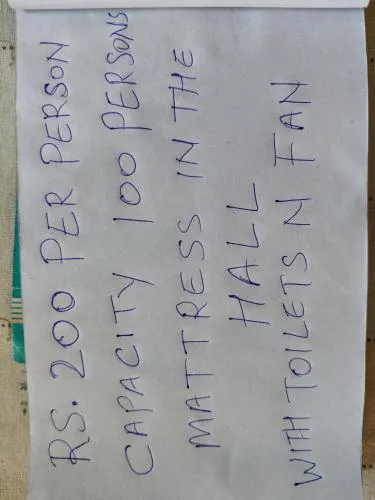 RS. 200 PER PERSON
CAPACITY 100 PERSONS
MATTRESS IN THE
HALL
WITH TOILETS N FAN